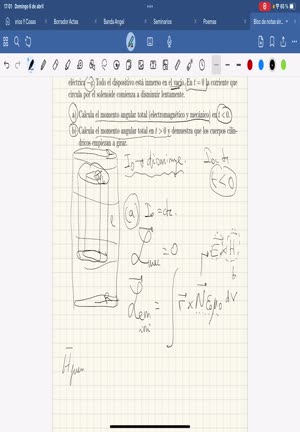 17:01 Domingo 6 de abril
erios Y Cosas
Borrador Actas
Banda Angel
Seminarios
Poemas
Bloc de notas sin...
eléctrica −q. Todo el dispositivo está inmerso en el vacío. En t = 0 la corriente que
circula por el solenoide comienza a disminuir lentamente.
a) Calcula el momento angular total (electromagnético y mecánico) en t < 0.
b) Calcula el momento angular en t > 0 y demuestra que los cuerpos cilín-
dricos empiezan a girar.
I₀ → disminuye.
t < 0
ⓐ I₀ = cte.
l
ℒ⃗ mec = 0
E⃗ × H⃗
ℒ⃗ em = ∫ r⃗ × N⃗ ε₀ μ₀ dV